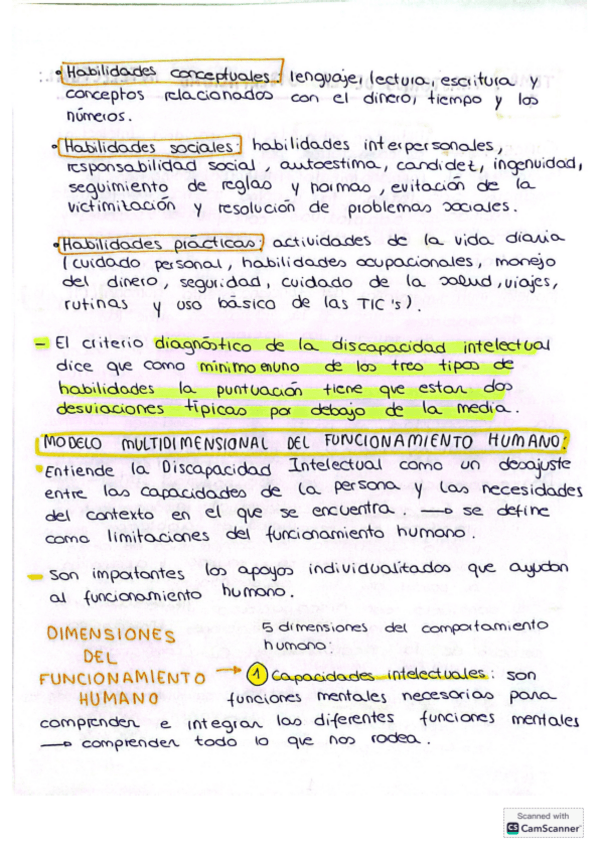 • Habilidades conceptuales: lenguaje, lectura, escritura y
conceptos relacionados con el dinero, tiempo y los
números.
• Habilidades sociales: habilidades interpersonales,
responsabilidad social, autoestima, candidet, ingenuidad,
seguimiento de reglas y normas, evitación de la
victimización y resolución de problemas sociales.
• Habilidades prácticas: actividades de la vida diaria
(cuidado personal, habilidades ocupacionales, manejo
del dinero, seguridad, cuidado de la salud, viajes,
rutinas y uso básico de las TIC's).
- El criterio diagnóstico de la discapacidad intelectual
dice que como mínimo en uno de los tres tipos de
habilidades la puntuación tiene que estar dos
desviaciones típicas por debajo de la media.
MODELO MULTIDIMENSIONAL DEL FUNCIONAMIENTO HUMANO:
• Entiende la Discapacidad Intelectual como un desajuste
entre las capacidades de la persona y las necesidades
del contexto en el que se encuentra. → se define
como limitaciones del funcionamiento humano.
- Son importantes los apoyos individualitados que ayudan
al funcionamiento humano.
DIMENSIONES
DEL
FUNCIONAMIENTO
HUMANO
5 dimensiones del comportamiento
humano:
→ 1 Capacidades intelectuales: son
funciones mentales necesarias para
comprender e integrar las diferentes funciones mentales
→ comprender todo lo que nos rodea.
Scanned with
CS CamScanner